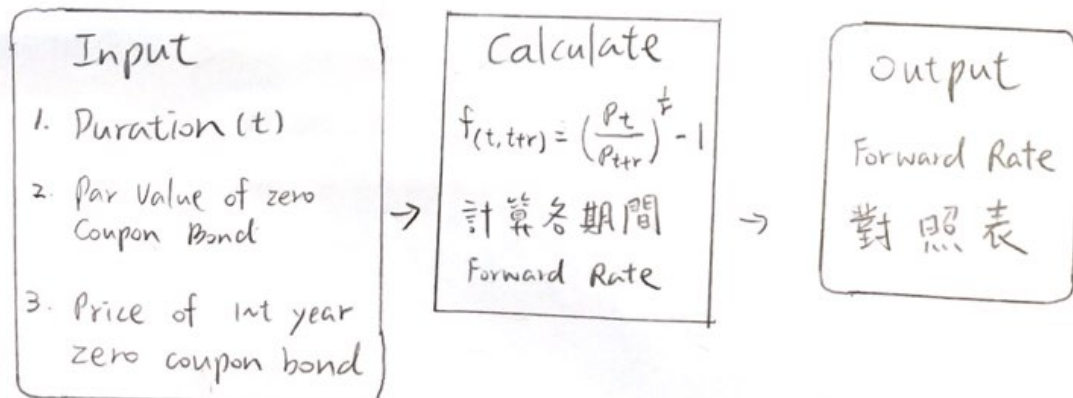 Input
1. Duration (t)
2. Par Value of zero
Coupon Bond
3. Price of 1~t year
zero coupon bond
→
Calculate
f(t,t+r) = (Pt/Pt+r)^(1/r) - 1
計算各期間
Forward Rate
→
Output
Forward Rate
對照表